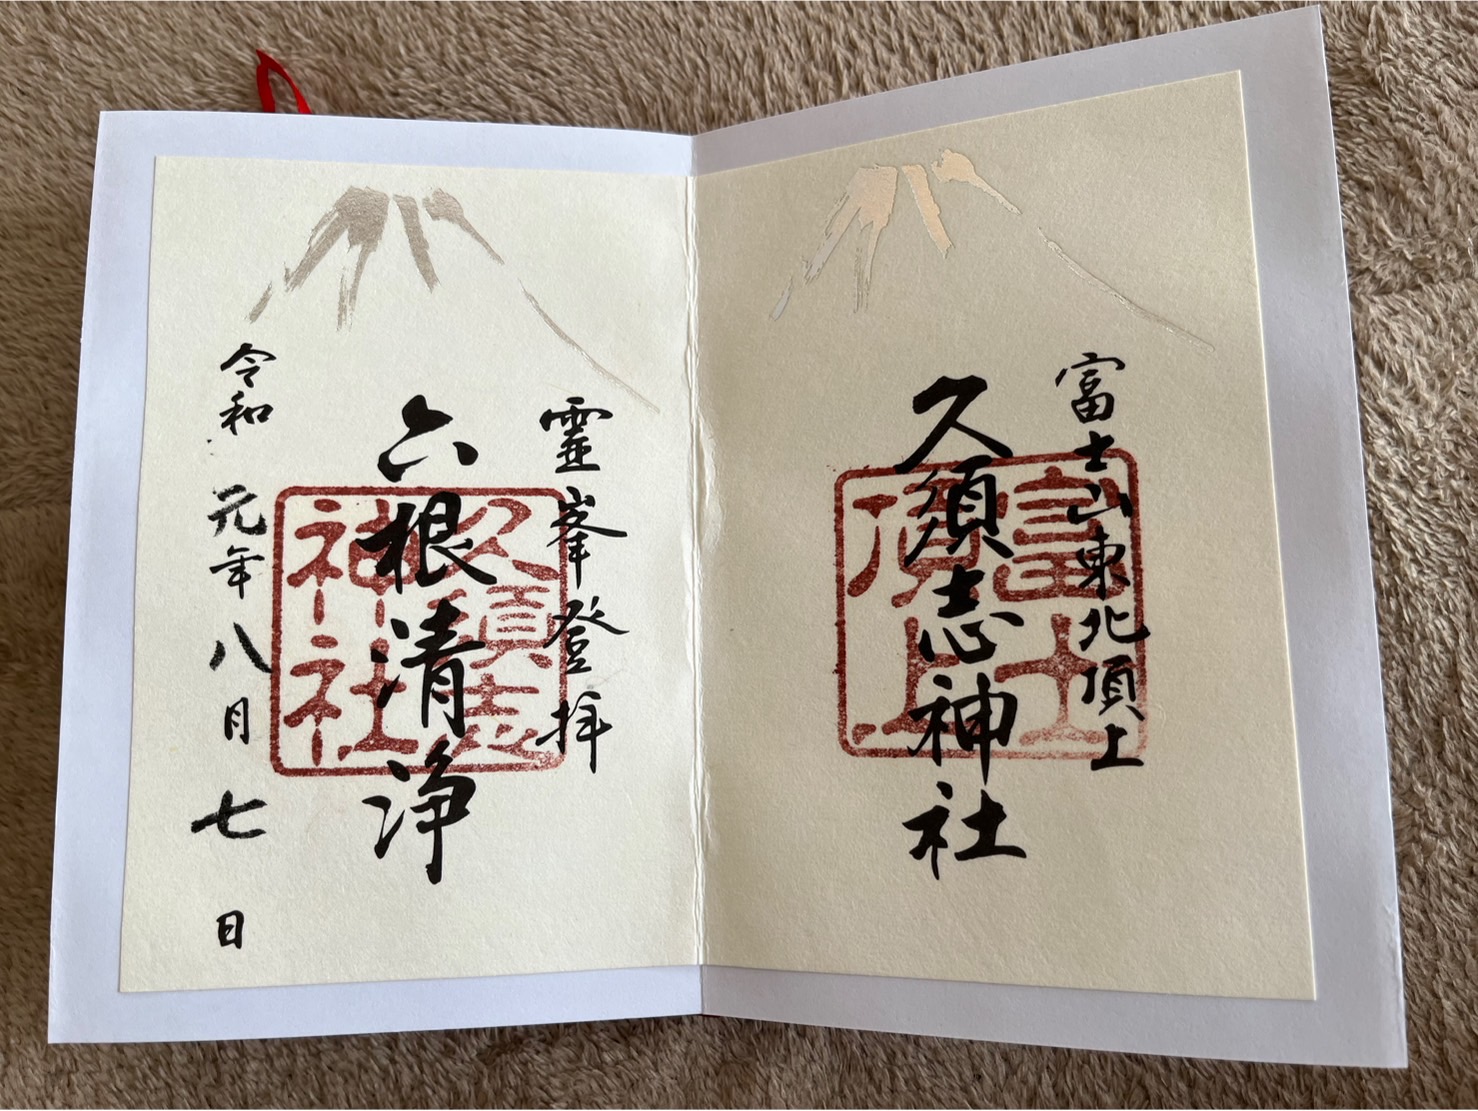 富士山東北頂上
久須志神社
富士
頂上
靈峯登拝
六根清浄
久須志
神社
令和 元年八月七日